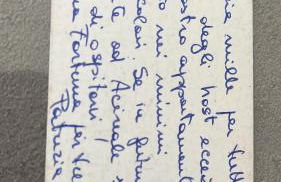 mille per tutt
degli host ecce
ostro appartament
nei minimi
colari. Se in futur
te ad Acireale
di ospitarvi
na Fortuna per
Patrizia